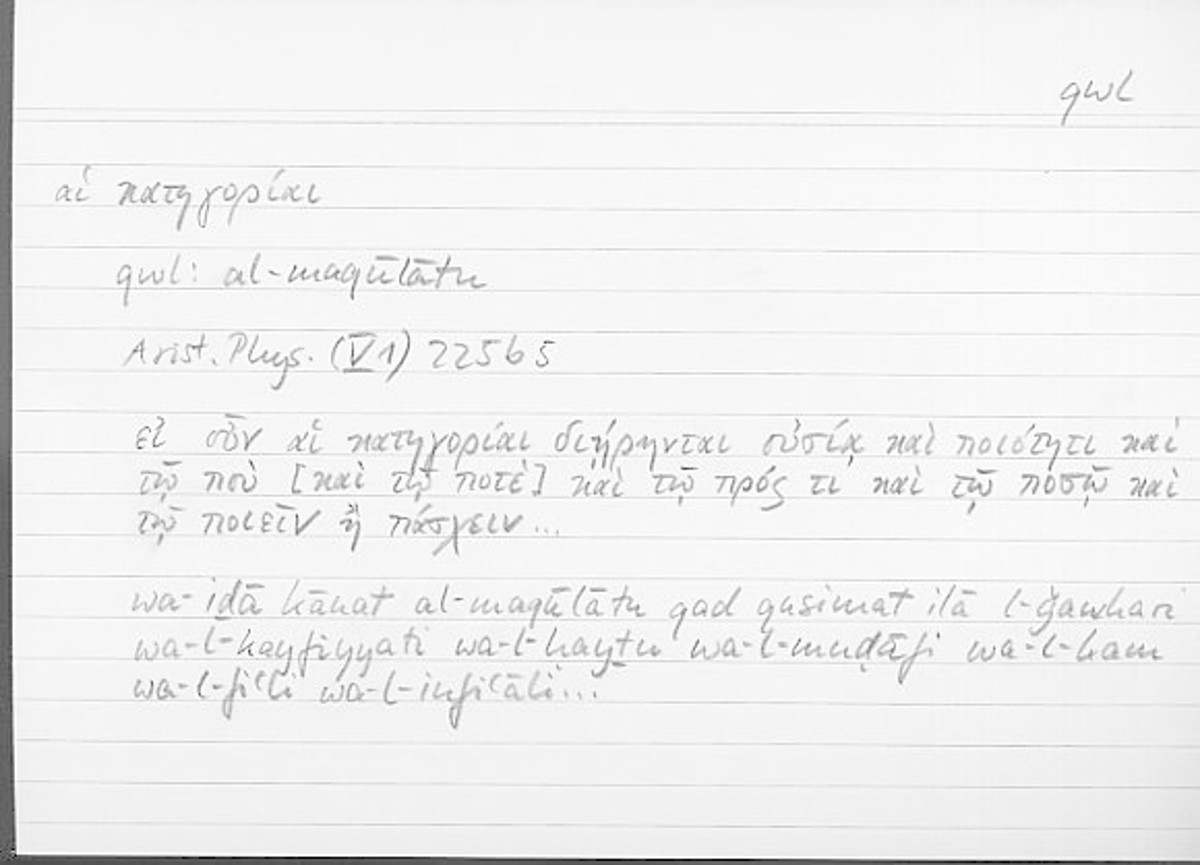 qwl
αἱ κατηγορίαι
qwl: al-maqūlātu
Arist. Phys. (V 1) 225b5
εἰ οὖν αἱ κατηγορίαι διῄρηνται οὐσίᾳ καὶ ποιότητι καὶ
τῷ ποὺ [καὶ τῷ ποτὲ] καὶ τῷ πρός τι καὶ τῷ ποσῷ καὶ
τῷ ποιεῖν ἢ πάσχειν...
wa-iḏā kānat al-maqūlātu qad qusimat ilā l-ǧawhari
wa-l-kayfiyyati wa-l-ḥayṯu wa-l-muḍāfi wa-l-kam
wa-l-fiʿli wa-l-infiʿāli...